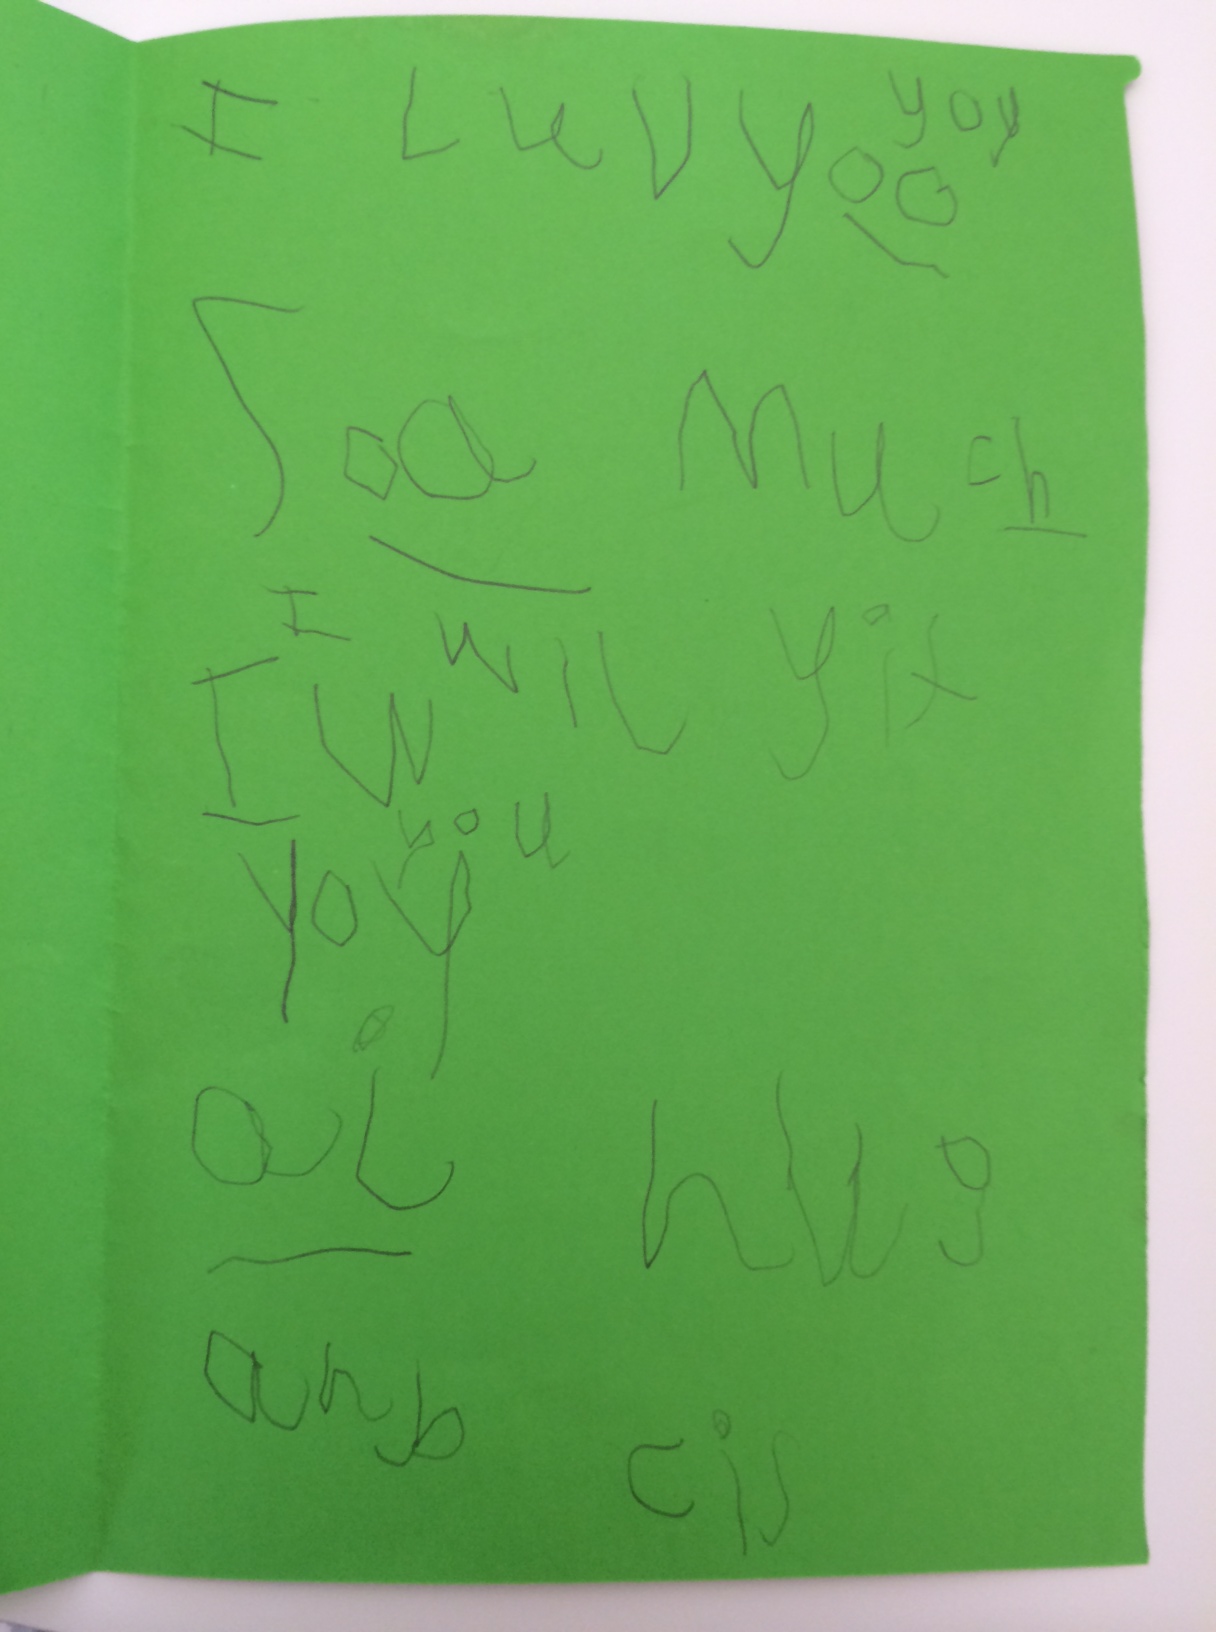 I Luv yoo yoy
Soa Much
I wil yit
I w
you
yoy
ai hug
anb cis